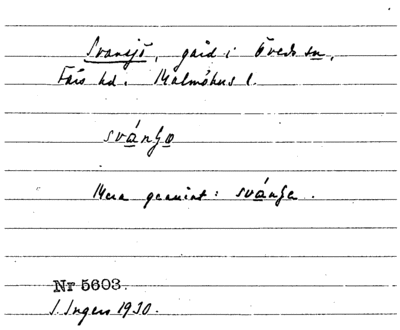 Svansjö, gård i Öveds sn,
Färs hd. Malmöhus l.
svánʃo
Mera genuint: svánʃe.
Nr 5603.
I. Ingers 1930.